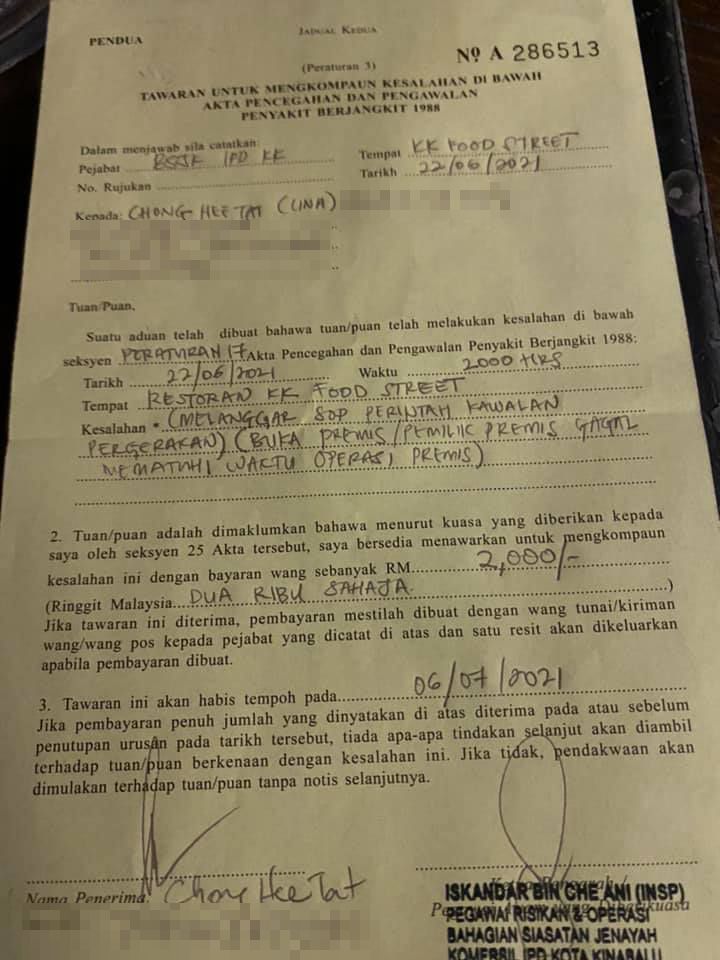 JADUAL KEDUA
PENDUA
(Peraturan 3)
No A 286513
TAWARAN UNTUK MENGKOMPAUN KESALAHAN DI BAWAH
AKTA PENCEGAHAN DAN PENGAWALAN
PENYAKIT BERJANGKIT 1988
Dalam menjawab sila catatkan:
Pejabat BSJK IPD KK
No. Rujukan
Tempat KK FOOD STREET
Tarikh 22/06/2021
Kepada: CHONG HEE TAT (CINA)
Tuan/Puan,
Suatu aduan telah dibuat bahawa tuan/puan telah melakukan kesalahan di bawah
seksyen PERATURAN 17 Akta Pencegahan dan Pengawalan Penyakit Berjangkit 1988:
Tarikh 22/06/2021 Waktu 2000 HRS
Tempat RESTORAN KK FOOD STREET
Kesalahan • (MELANGGAR SOP PERINTAH KAWALAN
PERGERAKAN) (BUKA PREMIS/PEMILIK PREMIS GAGAL
MEMATUHI WAKTU OPERASI PREMIS)
2. Tuan/puan adalah dimaklumkan bahawa menurut kuasa yang diberikan kepada
saya oleh seksyen 25 Akta tersebut, saya bersedia menawarkan untuk mengkompaun
kesalahan ini dengan bayaran wang sebanyak RM 2,000/-
(Ringgit Malaysia DUA RIBU SAHAJA )
Jika tawaran ini diterima, pembayaran mestilah dibuat dengan wang tunai/kiriman
wang/wang pos kepada pejabat yang dicatat di atas dan satu resit akan dikeluarkan
apabila pembayaran dibuat.
3. Tawaran ini akan habis tempoh pada 06/07/2021
Jika pembayaran penuh jumlah yang dinyatakan di atas diterima pada atau sebelum
penutupan urusan pada tarikh tersebut, tiada apa-apa tindakan selanjut akan diambil
terhadap tuan/puan berkenaan dengan kesalahan ini. Jika tidak, pendakwaan akan
dimulakan terhadap tuan/puan tanpa notis selanjutnya.
Nama Penerima: Chong Hee Tat
ISKANDAR BIN CHE ANI (INSP)
PEGAWAI RISIKAN & OPERASI
BAHAGIAN SIASATAN JENAYAH
KOMERSIL IPD KOTA KINABALU